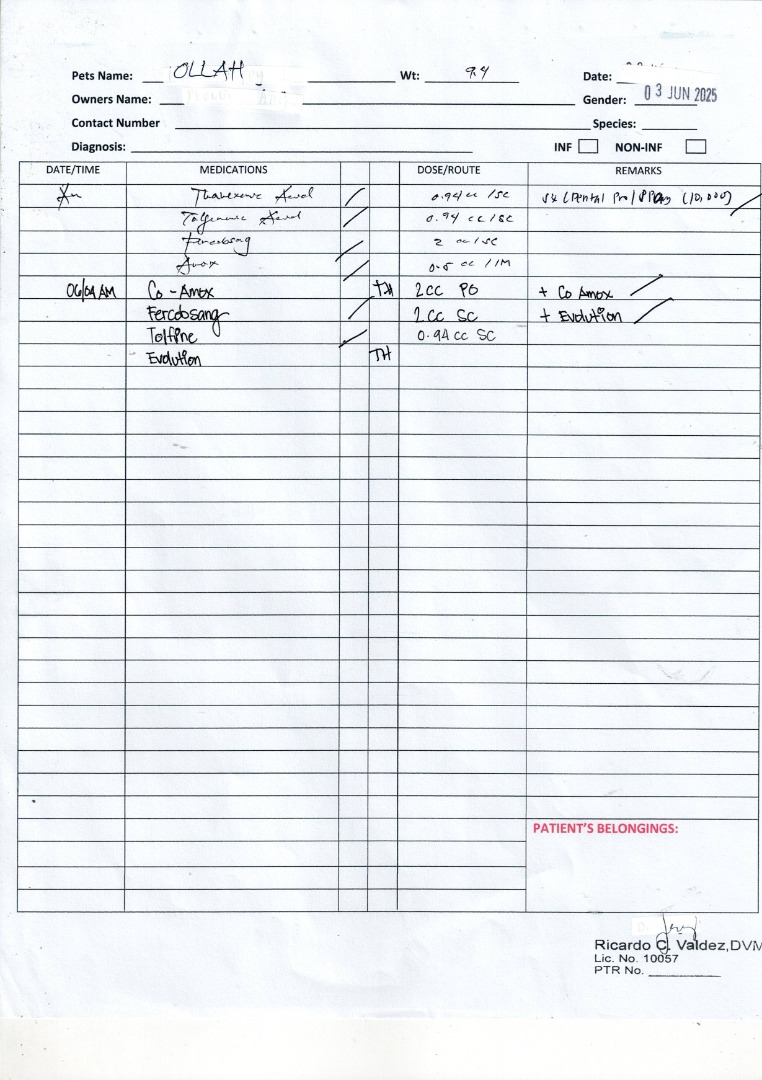 Pets Name: OLLAH Wt: 9.4 Date:
Owners Name: Gender: 03 JUN 2025
Contact Number Species:
Diagnosis: INF NON-INF
DATE/TIME MEDICATIONS DOSE/ROUTE REMARKS
0.94 cc / SC (10,000)
0.94 cc / SC
2 cc / SC
0.5 cc / IM
06/04 AM Co-Amox TH 2 CC PO + Co Amox
Fercobsang 2 CC SC + Evolution
Tolfine 0.94 CC SC
Evolution TH
PATIENT'S BELONGINGS:
Ricardo C. Valdez, DVM
Lic. No. 10057
PTR No.